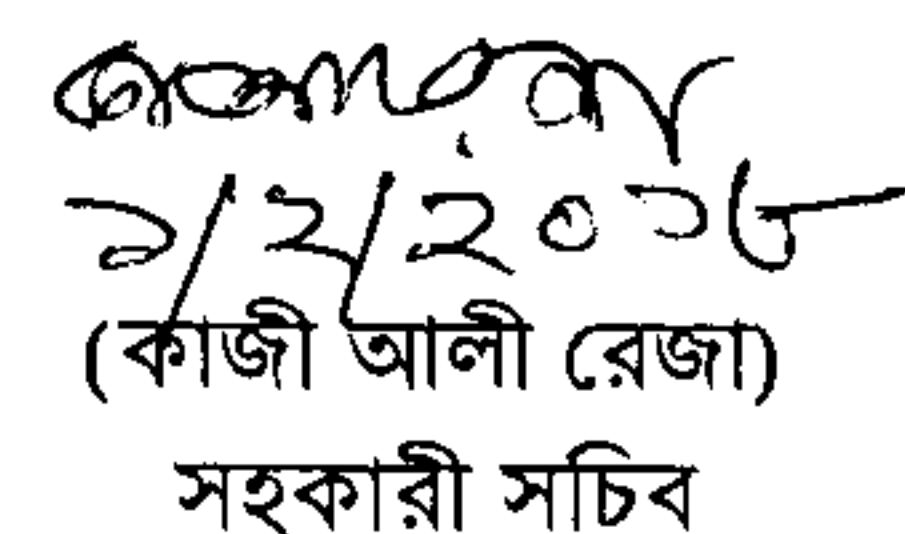 ১/২/২০১৬
(কাজী আলী রেজা)
সহকারী সচিব